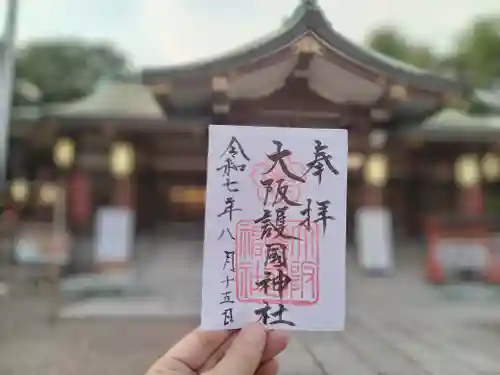 奉拝
大阪護国神社
令和七年八月十五日